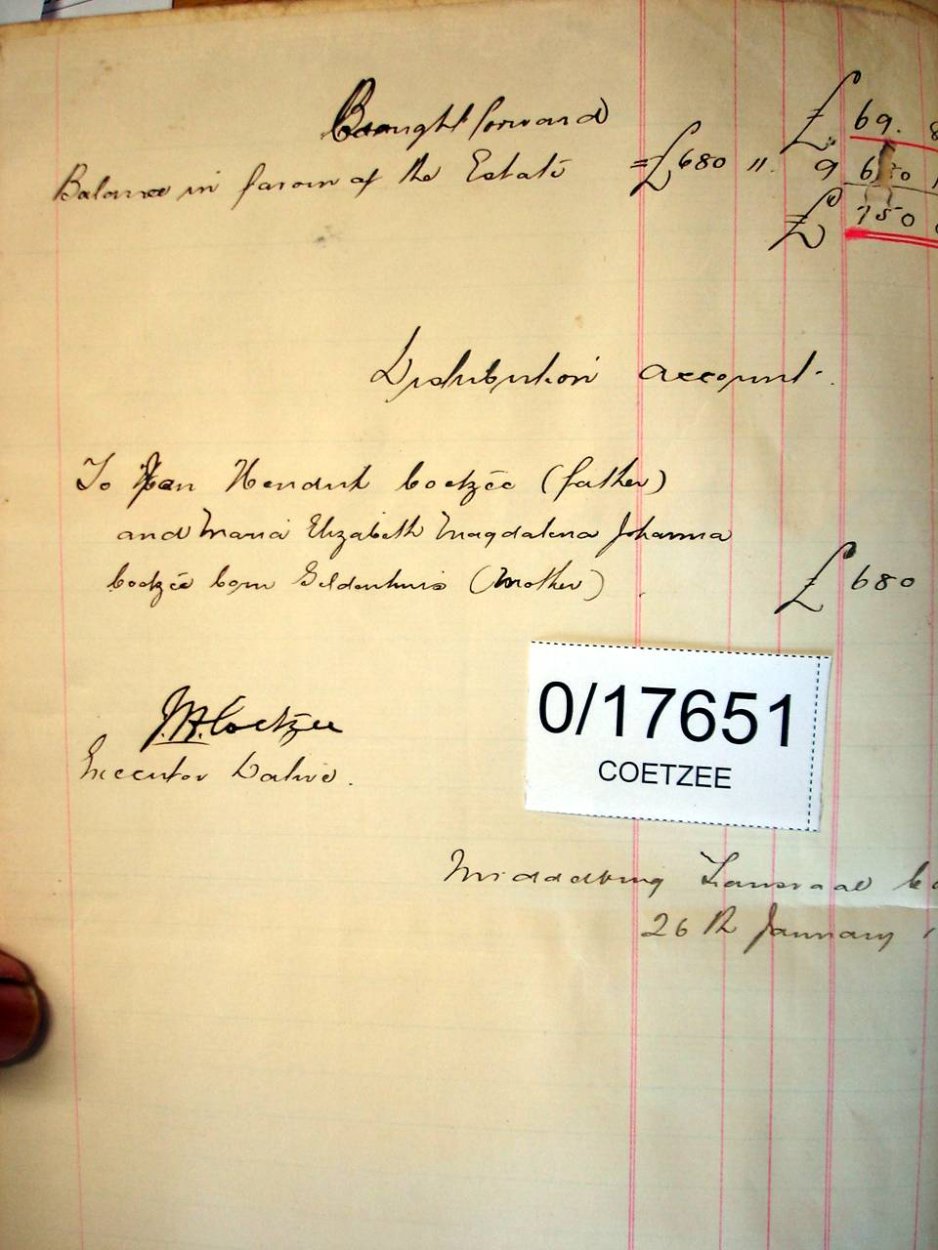 Brought forward £ 69. 8
Balance in favour of the Estate =£680 " 9 680 1
£ 750
Distribution account.
To Jan Hendrik Coetzée (father)
and Maria Elizabeth Magdalena Johanna
Coetzée born Geldenhuis (Mother) £ 680
J.H. Coetzee
Executor Dative.
0/17651
COETZEE
Middelburg Transvaal
26th January